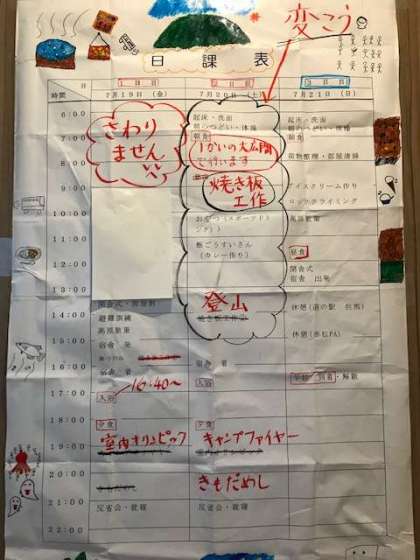 変こう
日課表
月日
1日目
2日目
3日目
時間
7月19日 (金)
7月20日 (土)
7月21日 (日)
6:00
7:00
8:00
9:00
10:00
11:00
12:00
13:00
14:00
15:00
16:00
17:00
18:00
19:00
20:00
21:00
22:00
さわり
ません
避難訓練
16:40~
入浴
夕食
室内オリンピック
反省会・就寝
起床・洗面
朝のつどい・体操
朝食
1かいの大広間
で行います
焼き板
工作
飯ごうすいさん
(カレー作り)
登山
宿舎 着
入浴
夕食
キャンプファイヤー
きもだめし
反省会・就寝
起床・洗面
朝のつどい・体操
朝食
荷物整理・部屋清掃
アイスクリーム作り
ロッククライミング
昼食
閉舎式
宿舎 出発
・解散